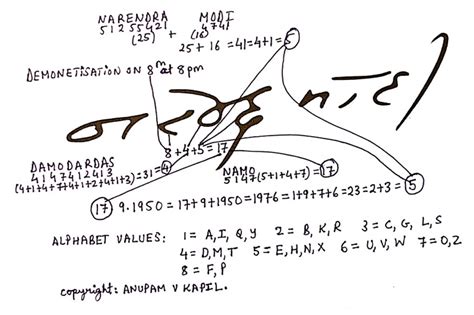 NARENDRA MODI
5 1 2 5 5 4 2 1 4 7 4 1
(25) + (16)
25 + 16 = 41 = 4+1 = 5
DEMONETISATION ON 8 at 8 pm
8 + 4 + 5 = 17
DAMODARDAS
4 1 4 7 4 1 2 4 1 3
(4+1+4+7+4+1+2+4+1+3) = 31 = 4
NAMO
5 1 4 7 (5+1+4+7) = 17
17 9.1950 = 17+9+1950 = 1976 = 1+9+7+6 = 23 = 2+3 = 5
ALPHABET VALUES: 1 = A, I, Q, Y 2 = B, K, R 3 = C, G, L, S
4 = D, M, T 5 = E, H, N, X 6 = U, V, W 7 = O, Z
8 = F, P
copyright: ANUPAM V KAPIL.